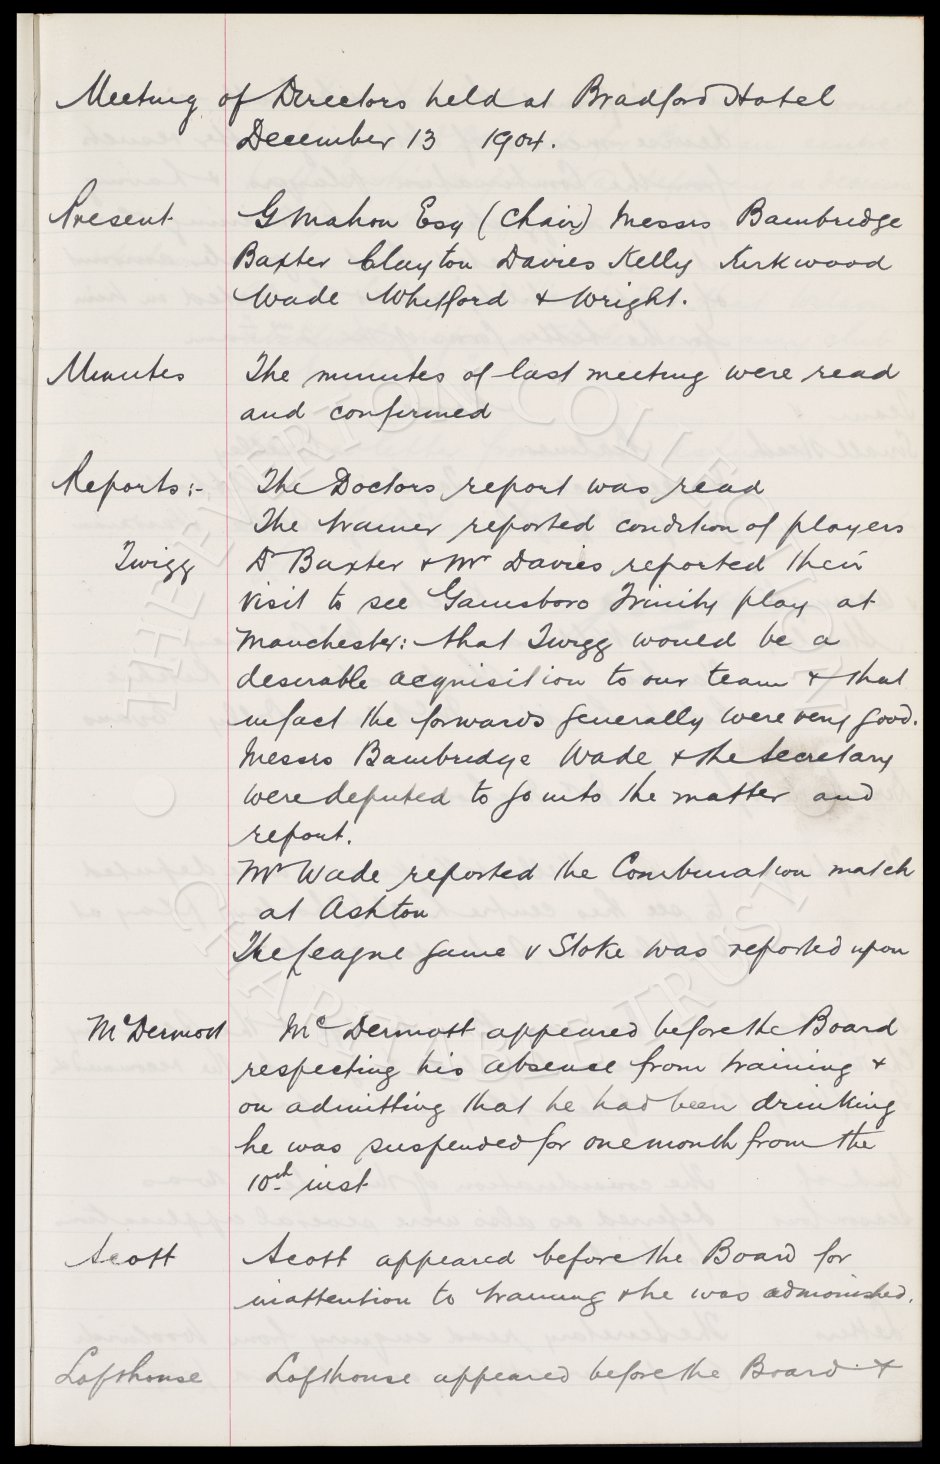 Meeting of Directors held at Bradford Hotel
December 13 1904.
Present G Mahon Esq (Chair) Messrs Bainbridge
Baxter Clayton Davies Kelly Kirkwood
Wade Whitford & Wright.
Minutes The minutes of last meeting were read
and confirmed
Reports:- The Doctors report was read
The trainer reported condition of players
Twigg Dr Baxter & Mr Davies reported their
visit to see Gainsboro Trinity play at
Manchester: that Twigg would be a
desirable acquisition to our team & that
infact the forwards generally were very good.
Messrs Bainbridge Wade & the Secretary
were deputed to go into the matter and
report.
Mr Wade reported the Combination match
at Ashton
The League game v Stoke was reported upon
McDermott McDermott appeared before the Board
respecting his absence from training &
on admitting that he had been drinking
he was suspended for one month from the
10th inst
Scott Scott appeared before the Board for
inattention to training & he was admonished.
Lofthouse Lofthouse appeared before the Board &
THE EVERTON COLLECTION
CHARITABLE TRUST